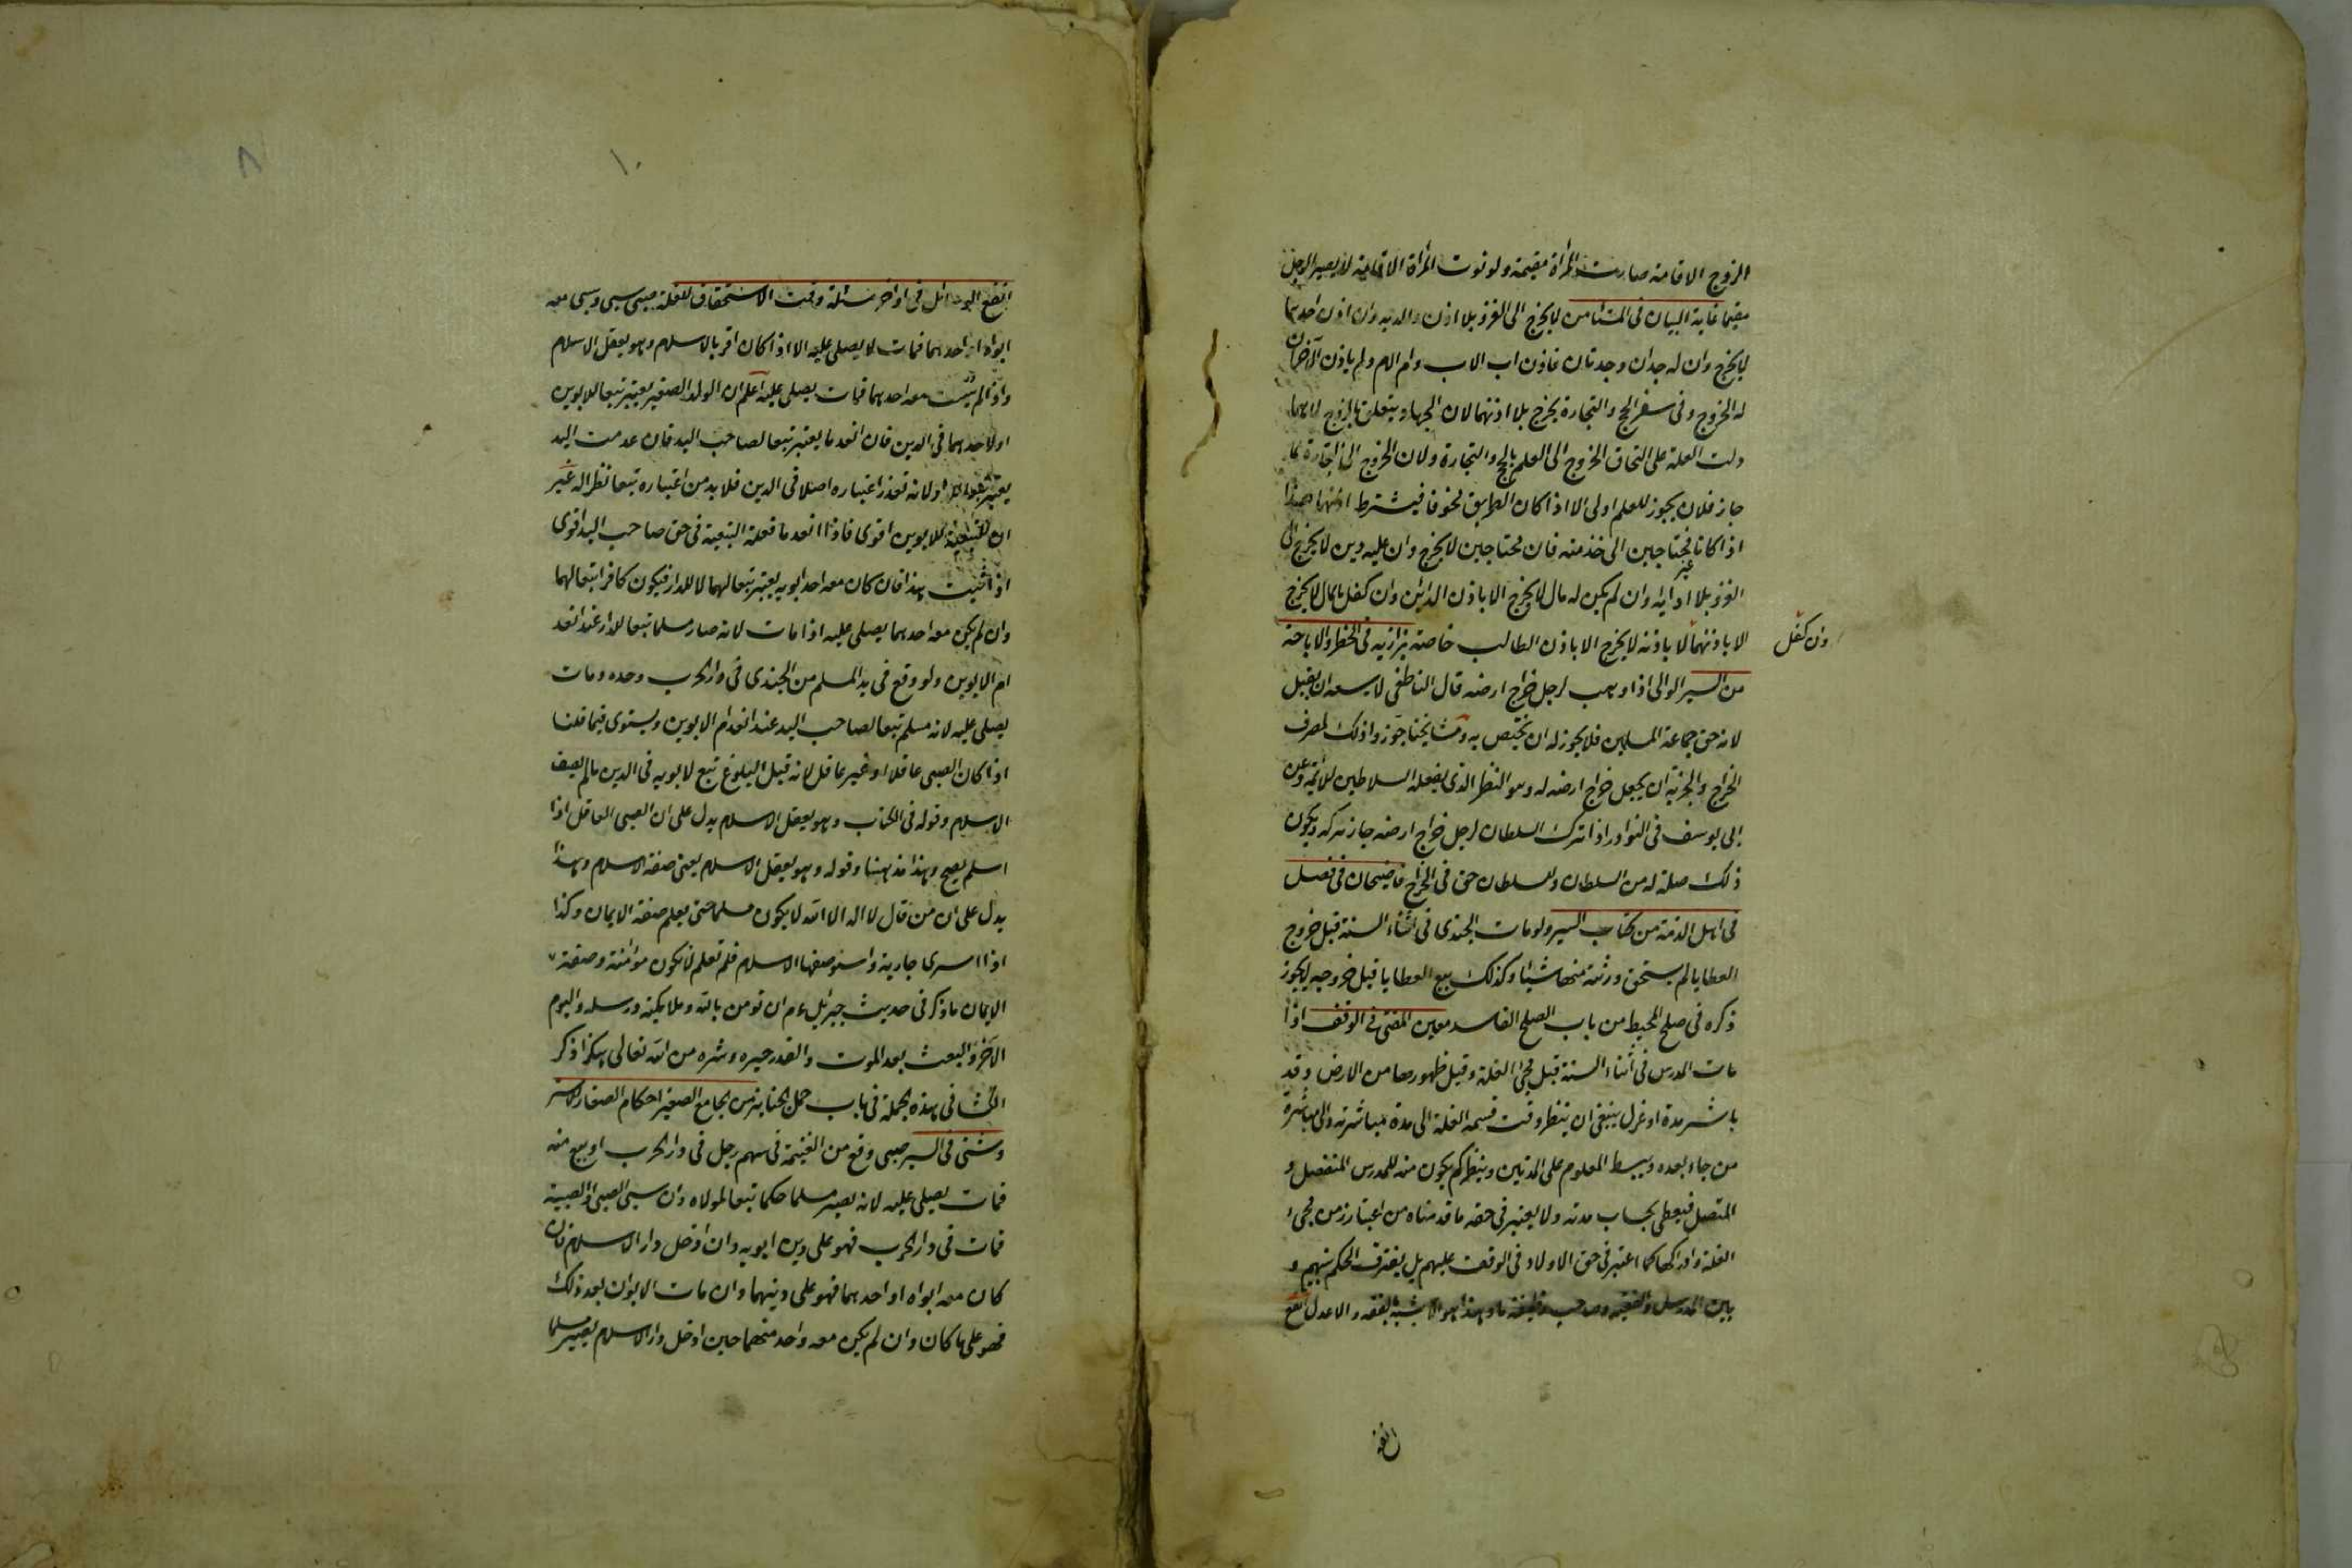 الزوج الاقامة صارت المراة مقيمة ولو نوت المراة الاقامة لا يصير الرجل
مقيما غاية البيان فى المستامن لا يخرج الى الغزو بلا اذن والديه وان اذن احدهما
لا يخرج وان له جدان وجدتان فاذن اب الاب وام الام ولم ياذن الآخران
له الخروج وفى سفر الحج والتجارة يخرج بلا اذنهما لان الجهاد يتعلق بالروح لا سيما
دلت العلة على التحاق الخروج الى العلم بالحج والتجارة ولان الخروج الى التجارة لما
جاز فلان يجوز للعلم اولى الا اذا كان الطريق مخوفا فيشترط اذنهما هذا
اذا كانا غير محتاجين الى خدمته فان محتاجين لا يخرج وان عليه دين لا يخرج الى
الغزو بلا ادائه وان لم يكن له مال لا يخرج الا باذن الدائن وان كفل بالمال لا يخرج
الا باذنهما لا باذنه لا يخرج الا باذن الطالب خاصة بزازيه فى الحظر والاباحة
وان كفل
من السير الوالى اذا وهب لرجل خراج ارضه قال الناطفى لا يسعه ان يقبل
لانه حق جماعة المسلمين فلا يجوز له ان يختص به ومشايخنا جوزوا ذلك لمصرف
الخراج والجزية ان يجعل خراج ارضه له وهو النظر الذى يفعله السلاطين للائمة وعن
ابى يوسف فى النوادر اذا ترك السلطان لرجل خراج ارضه جاز تركه ويكون
ذلك صلة له من السلطان وللسلطان حق فى الخراج قاضيخان فى فصل
فى اهل الذمة من كتاب السير ولو مات الجندى فى اثناء السنة قبل خروج
العطايا لم يستحق ورثته منها شيئا وكذلك بيع العطايا قبل خروجه لا يجوز
ذكره فى صلح المحيط من باب الصلح الفاسد معين المفتى فى الوقف اذا
مات المدرس فى اثناء السنة قبل مجئ الغلة وقبل ظهورها من الارض وقد
باشر مدة او عزل ينبغى ان ينظر وقت قسمة الغلة الى مدة مباشرته والى مباشرة
من جاء بعده ويبسط المعلوم على المدتين وينظر كم يكون منه للمدرس المنفصل و
المتصل فيعطى بحساب مدته ولا يعتبر فى حقه ما قدمناه من اعتبار زمن مجئ
الغلة وادراكها كما اعتبر فى حق الاولاد فى الوقف عليهم بل يفترق الحكم بينهم و
بين المدرس والفقيه وصاحب وظيفة ما وهذا هو الاشبه بالفقه والاعدل انفع
انفع
١٠
٨
انفع الوسائل فى اواخر مسئلة وقت الاستحقاق للغلة صبى سبى وسبى معه
ابواه او احدهما فمات لا يصلى عليه الا اذا كان اقر بالاسلام وهو يعقل الاسلام
واذا لم يسب معه احدهما فمات يصلى عليه اعلم ان الولد الصغير يعتبر تبعا للابوين
او لاحدهما فى الدين فان انعدما يعتبر تبعا لصاحب اليد فان عدمت اليد
يعتبر تبعا للدار لانه تعذر اعتباره اصلا فى الدين فلا بد من اعتباره تبعا نظرا له غير
ان التبعية للابوين اقوى فاذا انعدما فعلة التبعية فى حق صاحب اليد اقوى
اذا ثبت هذا فان كان معه احد ابويه يعتبر تبعا لهما لا للدار فيكون كافرا تبعا لهما
وان لم يكن معه احدهما يصلى عليه اذا مات لانه صار مسلما تبعا للدار عند انعد
ام الابوين ولو وقع فى يد المسلم من الجندى فى دار الحرب وحده ومات
يصلى عليه لانه مسلم تبعا لصاحب اليد عند انعدام الابوين ويستوى فيما قلنا
اذا كان الصبى عاقلا او غير عاقل لانه قبل البلوغ تبع لابويه فى الدين ما لم يصف
الاسلام وقوله فى الكتاب وهو يعقل الاسلام يدل على ان الصبى العاقل اذا
اسلم يصح وهذا مذهبنا وقوله وهو يعقل الاسلام يعنى صفة الاسلام وهذا
يدل على ان من قال لا اله الا الله لا يكون مسلما حتى يعلم صفة الايمان وكذا
اذا اسرى جارية واستوصفها الاسلام فلم تعلم لا تكون مؤمنة وصفة
الايمان ما ذكر فى حديث جبرئيل ءم ان تومن بالله وملائكته ورسله واليوم
الآخر والبعث بعد الموت والقدر خيره وشره من الله تعالى هكذا ذكر
فى هذه الجملة فى باب حمل الجنازة من الجامع الصغير احكام الصغار للاستر
وشنى فى السير صبى وقع من الغنيمة فى سهم رجل فى دار الحرب او بيع منه
فمات يصلى عليه لانه يصير مسلما حكما تبعا لمولاه وان سبى الصبى والصبية
فمات فى دار الحرب فهو على دين ابويه وان ادخل دار الاسلام فان
كان معه ابواه او احدهما فهو على دينهما وان مات الابوان بعد ذلك
فهو على ما كان وان لم يكن معه واحد منهما حين ادخل دار الاسلام يصير مسلما